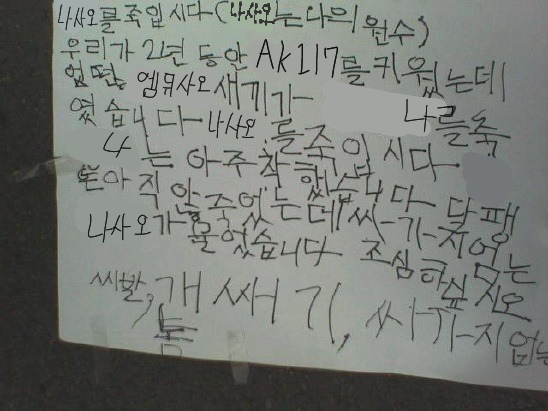 나사오를죽입시다(나사오는나의 원수)
우리가 2년 동안 AK117를키웠는데
어떤 엠뮤사오 새끼가 나를죽
였습니다 나사오를죽입시다
4는 아주착했습니다 달팽
은아직안죽었는데싸가지없는
나사오가 물었습니다 조심하싶시오
씨빨, 개쌔기, 싸가지없는
놈